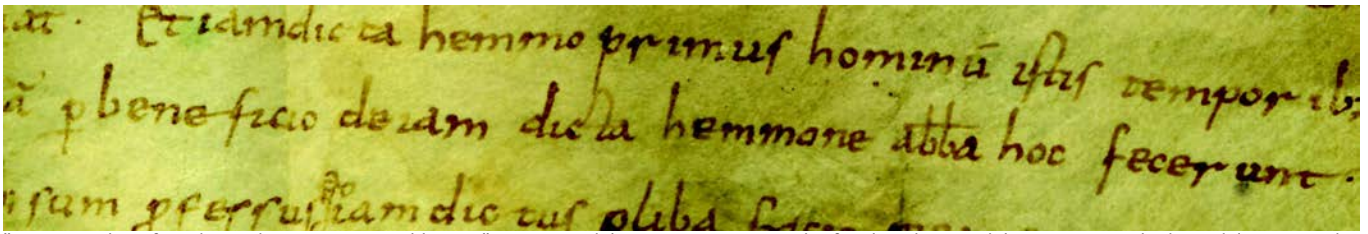 Et iamdicta hemmo primus hominū istis temporib;
ꝑ beneficio deiam dicta hemmone abba hoc fecerunt ·
sum ꝓfessus iamdictus oliba